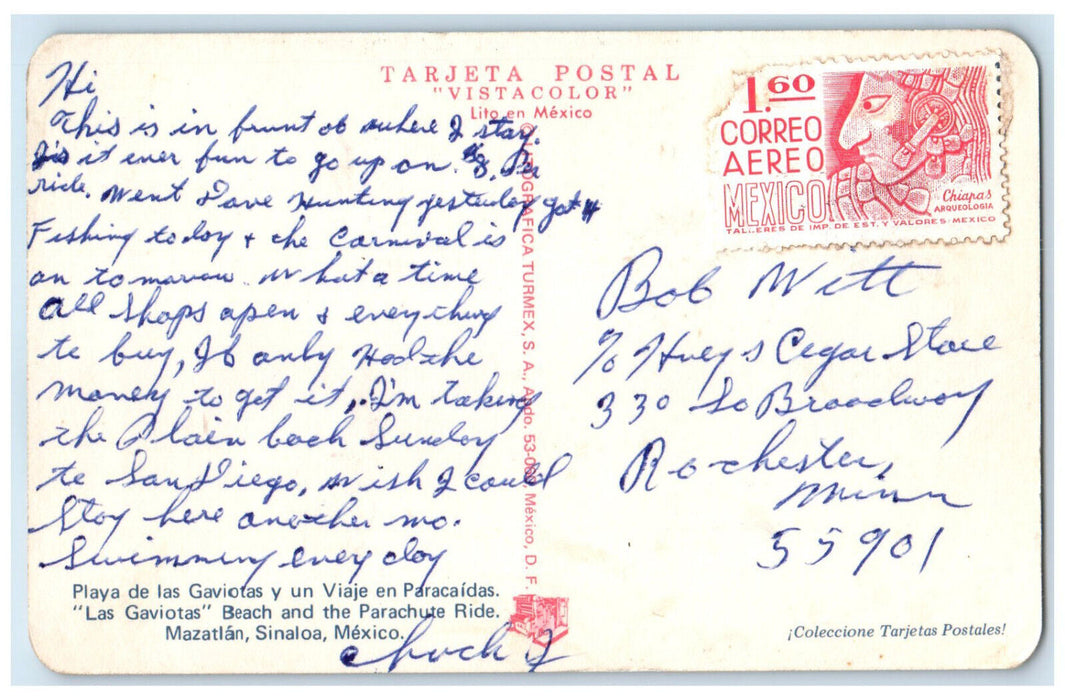 TARJETA POSTAL
"VISTACOLOR"
Lito en México
Hi
This is in frunt of where I stay.
is it ever fun to go up on
ride. Went Dove Hunting yesterday got 4
Fishing today + the Carnival is
on tomarow. What a time
all Shops open & everything
to buy, If only Had the
money to get it, I'm taking
the Plain back Sunday
to San Diego, wish I could
Stay here another mo.
Swimming every day
Chuck J
Playa de las Gaviotas y un Viaje en Paracaídas.
"Las Gaviotas" Beach and the Parachute Ride.
Mazatlán, Sinaloa, México.
TURMEX, S. A., Apdo. México, D. F.
1.60
CORREO
AEREO
MEXICO
Chiapas
ARQUEOLOGIA
TALLERES DE IMP. DE EST. Y VALORES-MEXICO
Bob Witt
% Hueys Cegar Store
330 So Broadway
Rochester,
Minn
55901
¡Coleccione Tarjetas Postales!